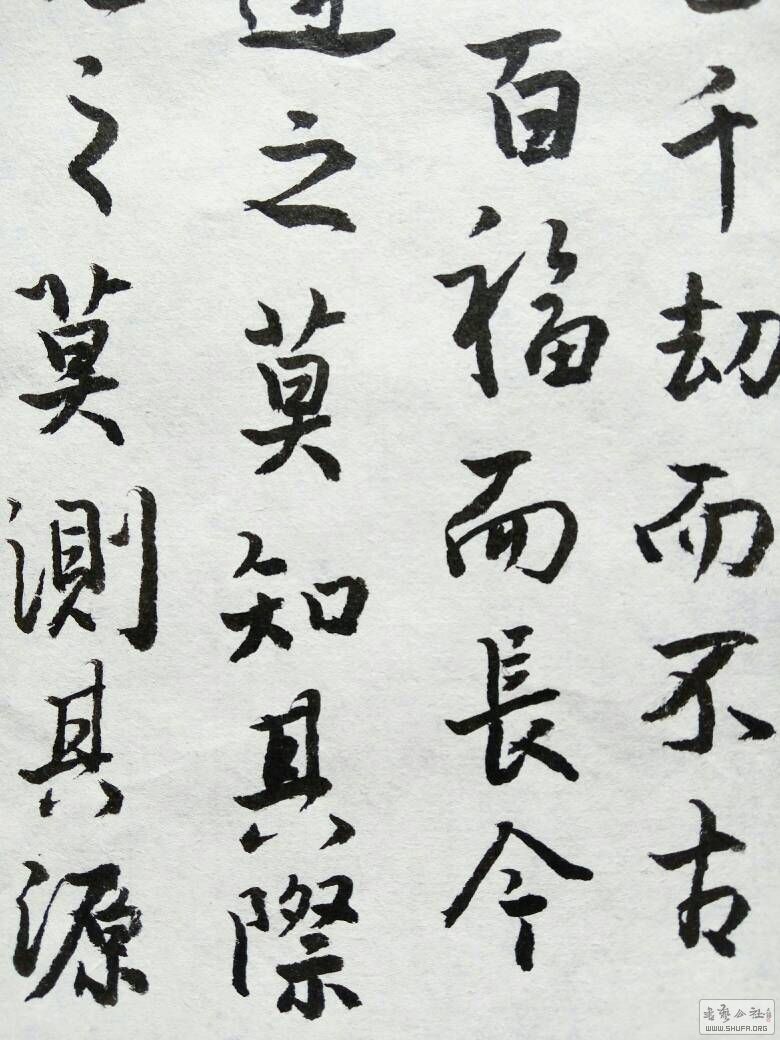 千劫而不古
百福而長今
之莫知其際
之莫測其源
書藝公社
WWW.SHUFA.ORG